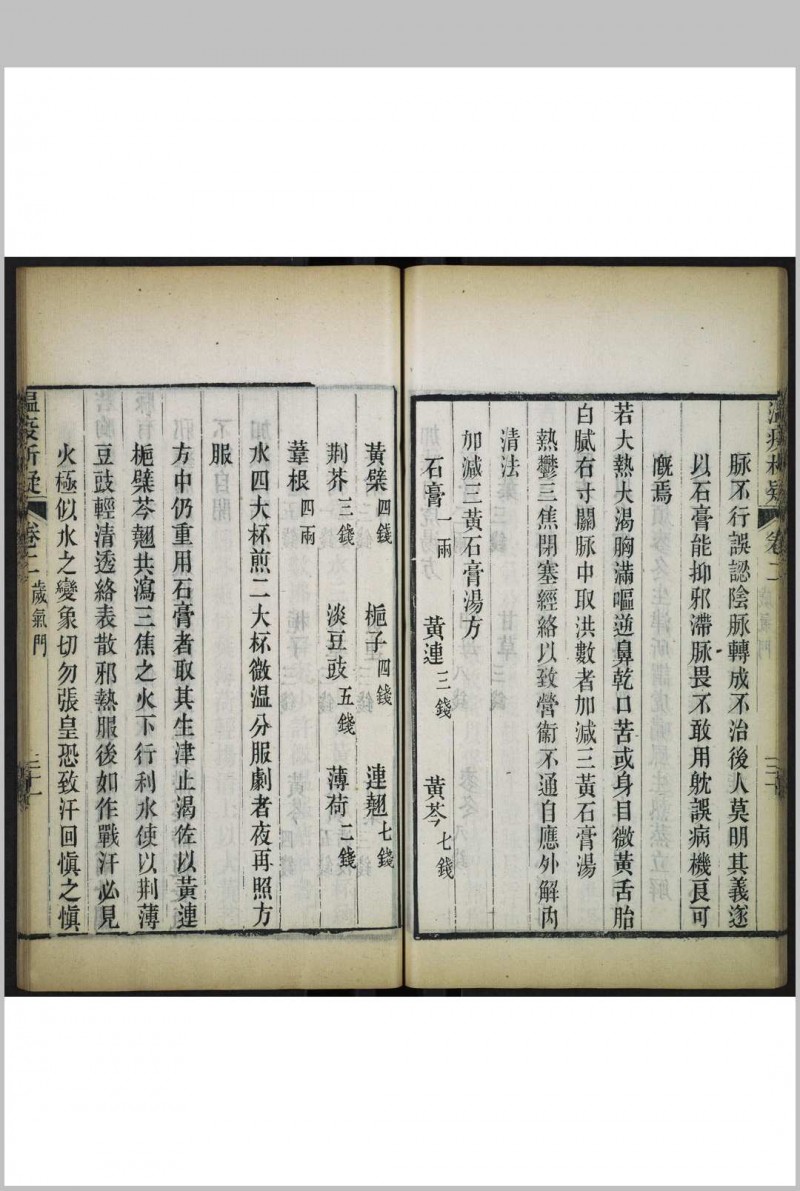 脉不行誤認陰脉轉成不治後人莫明其義遂
以石膏能抑邪滯脉畏不敢用躭誤病機良可
慨焉
若大熱大渴胸滿嘔逆鼻乾口苦或身目微黃舌胎
白膩右寸關脉中取洪數者加減三黃石膏湯
熱鬱三焦閉塞經絡以致營衞不通自應外解內
清法
加減三黃石膏湯方
石膏一兩 黃連三錢 黃芩七錢
黃蘗四錢 梔子四錢 連翹七錢
荆芥三錢 淡豆豉五錢 薄荷二錢
葦根四兩
水四大杯煎二大杯微溫分服劇者夜再照方
服
方中仍重用石膏者取其生津止渴佐以黃連
梔蘗芩翹共瀉三焦之火下行利水使以荆薄
豆豉輕清透絡表散邪熱服後如作戰汗必見
火極似水之變象切勿張皇恐致汗回愼之愼
溫疫析疑 卷二 歲氣門 三十一